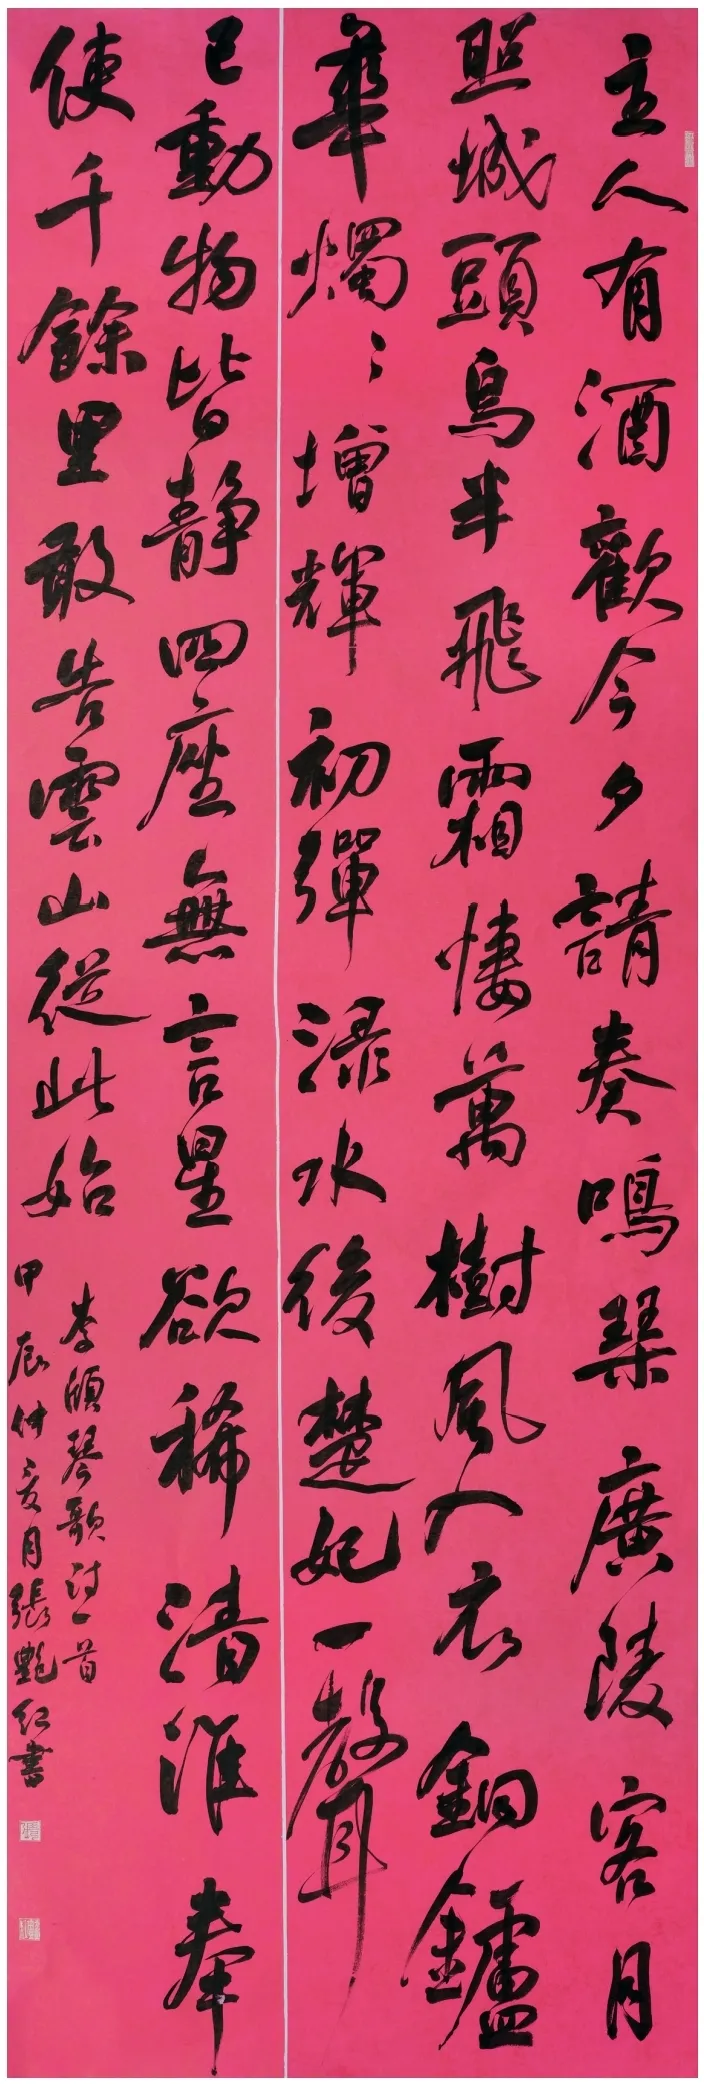 主人有酒歡今夕請奏鳴琴廣陵客月
照城頭烏半飛霜悽萬樹風入衣銅鑪
華燭〻增輝初彈渌水後楚妃一聲
已動物皆静四座無言星欲稀清淮奉
使千餘里敢告雲山從此始
李頎琴歌詩一首
甲辰仲夏月張艷红書